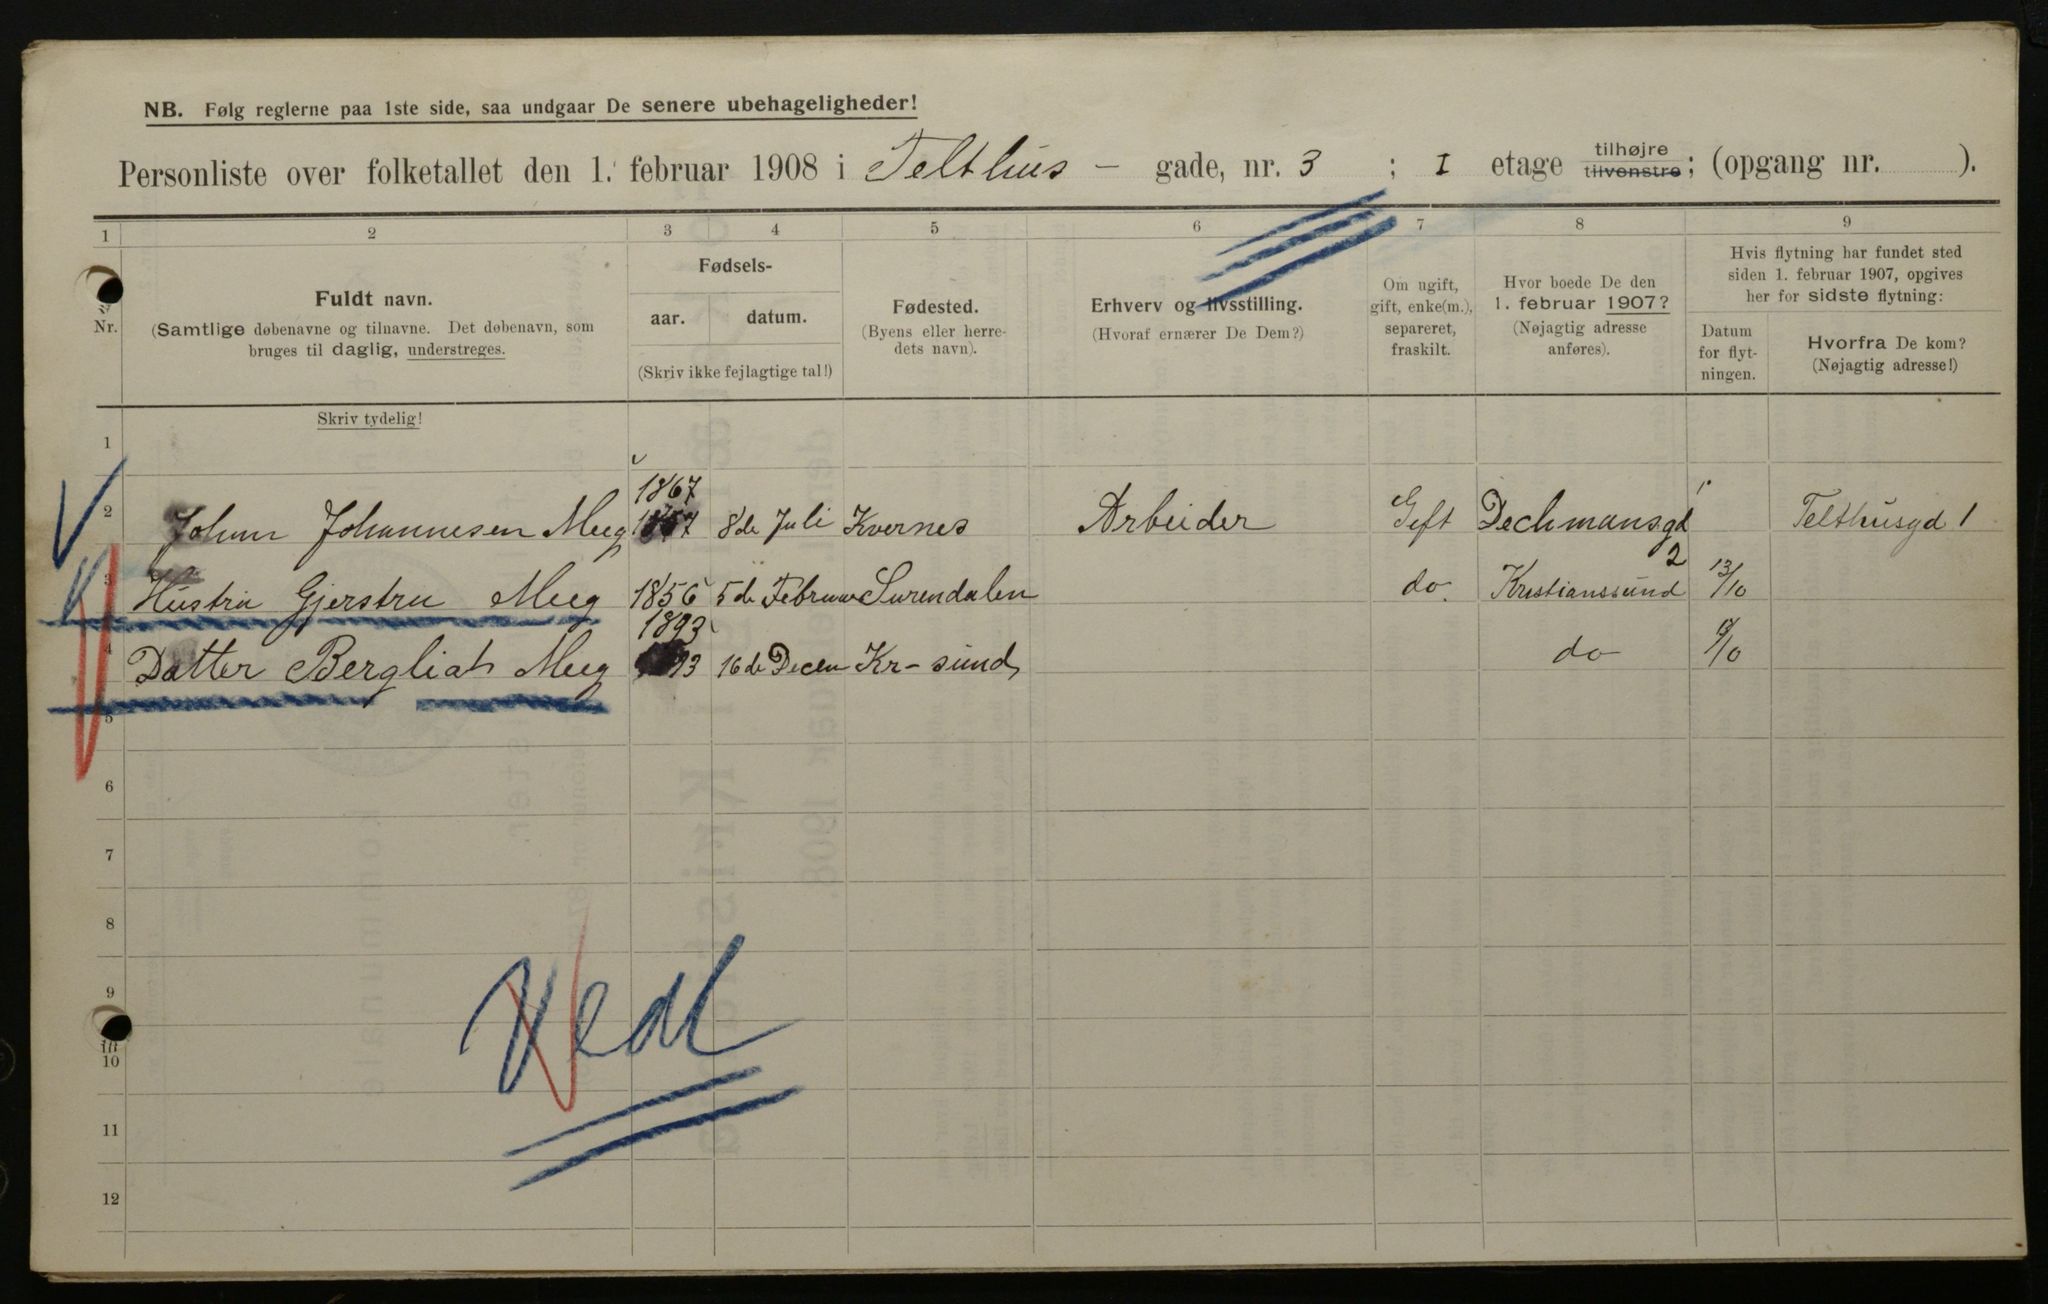 NB. Følg reglerne paa 1ste side, saa undgaar De senere ubehageligheder!
Personliste over folketallet den 1. februar 1908 i Telthus - gade, nr. 3 ; I etage tilhøjre tilvenstre; (opgang nr. ).
1 2 3 4 5 6 7 8 9
Nr.
Fuldt navn.
(Samtlige døbenavne og tilnavne. Det døbenavn, som
bruges til daglig, understreges.
Fødsels-
aar. datum.
(Skriv ikke fejlagtige tal!)
Fødested.
(Byens eller herre-
dets navn).
Erhverv og livsstilling.
(Hvoraf ernærer De Dem?)
Om ugift,
gift, enke(m.),
separeret,
fraskilt.
Hvor boede De den
1. februar 1907?
(Nøjagtig adresse
anføres).
Hvis flytning har fundet sted
siden 1. februar 1907, opgives
her for sidste flytning:
Datum
for flyt-
ningen.
Hvorfra De kom?
(Nøjagtig adresse!)
Skriv tydelig!
1
1867
2 Johan Johannesen Meeg 8de Juli Kvernes Arbeider Gift Dechmansgd 2 Telthusgd 1
3 Hustru Gjerstru Meeg 1856 5de Februar Surendalen do. Kristianssund 13/10
1893
4 Datter Bergliat Meeg 93 16de Decem Kr-sund do /10
5
6
7
8
9
10
11
12
Vedl